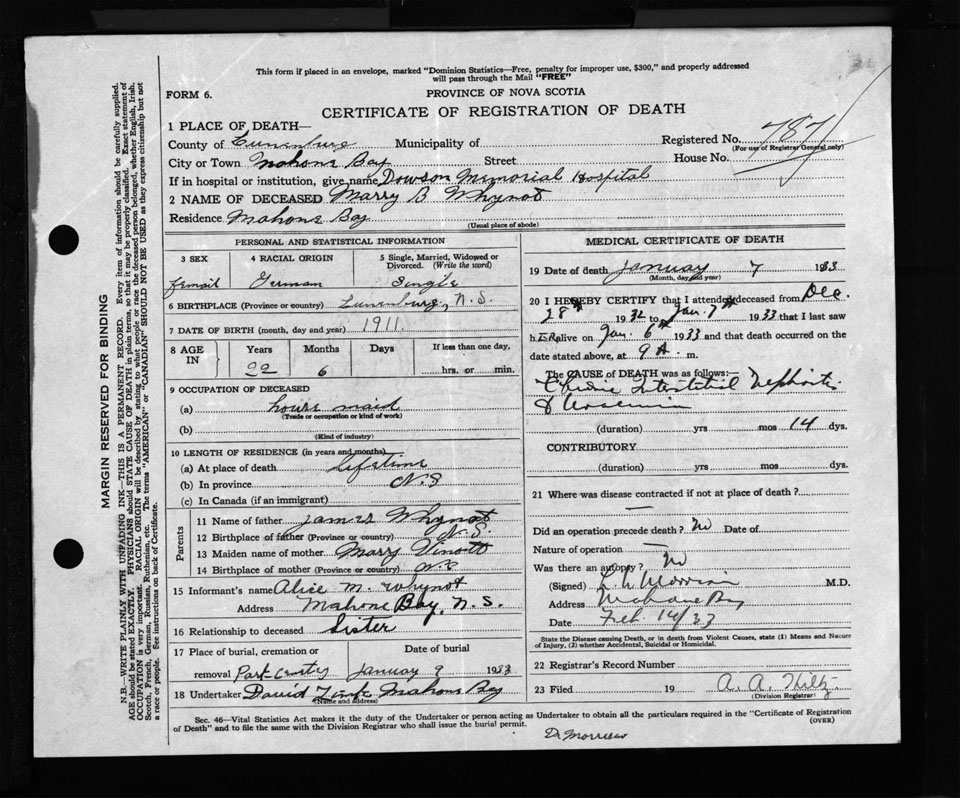 This form if placed in an envelope, marked "Dominion Statistics—Free, penalty for improper use, $300," and properly addressed
will pass through the Mail "FREE"
FORM 6. PROVINCE OF NOVA SCOTIA
CERTIFICATE OF REGISTRATION OF DEATH
1 PLACE OF DEATH—
County of Lunenburg Municipality of Registered No. 7871
(For use of Registrar General only)
City or Town Mahone Bay Street House No.
If in hospital or institution, give name Dowson Memorial Hospital
2 NAME OF DECEASED Marry B Whynot
Residence Mahone Bay
(Usual place of abode)
PERSONAL AND STATISTICAL INFORMATION
3 SEX 4 RACIAL ORIGIN 5 Single, Married, Widowed or Divorced. (Write the word)
femail German Single
6 BIRTHPLACE (Province or country) Lunenburg, N.S.
7 DATE OF BIRTH (month, day and year) 1911.
8 AGE IN Years Months Days If less than one day,
22 6 hrs. or min.
9 OCCUPATION OF DECEASED
(a) house maid
(Trade or occupation or kind of work)
(b)
(Kind of industry)
10 LENGTH OF RESIDENCE (in years and months)
(a) At place of death lifetime
(b) In province N.S
(c) In Canada (if an immigrant)
Parents
11 Name of father James Whynot
12 Birthplace of father (Province or country) N.S.
13 Maiden name of mother Marry
14 Birthplace of mother (Province or country) N.S
15 Informant's name Alice M. Whynot
Address Mahone Bay, N.S.
16 Relationship to deceased Sister
17 Place of burial, cremation or removal Date of burial
Park January 9 1933
18 Undertaker David Zink Mahone Bay
(Name and address)
MEDICAL CERTIFICATE OF DEATH
19 Date of death January 7 1933
(Month, day and year)
20 I HEREBY CERTIFY that I attended deceased from Dec.
28th 1932 to Jan. 7th 1933 that I last saw
h ER alive on Jan. 6th 1933 and that death occurred on
date stated above, at 9 A. m.
The CAUSE OF DEATH was as follows:—
Chronic Interstitial Nephritis
& Uraemia
(duration) yrs mos 14 dys.
CONTRIBUTORY
(duration) yrs. mos. dys.
21 Where was disease contracted if not at place of death?
—
Did an operation precede death? No Date of
Nature of operation —
Was there an autopsy? No
(Signed) M.D.
Address Mahone Bay
Date Feb. 14/33
State the Disease causing Death, or in death from Violent Causes, state (1) Means and Nature
of Injury, (2) whether Accidental, Suicidal or Homicidal.
22 Registrar's Record Number
23 Filed 19 A. A. Hiltz.
(Division Registrar)
Sec. 46—Vital Statistics Act makes it the duty of the Undertaker or person acting as Undertaker to obtain all the particulars required in the "Certificate of Registration
of Death" and to file the same with the Division Registrar who shall issue the burial permit. (OVER)
MARGIN RESERVED FOR BINDING
N.B.—WRITE PLAINLY WITH UNFADING INK—THIS IS A PERMANENT RECORD. Every item of information should be carefully supplied.
AGE should be stated EXACTLY. PHYSICIANS should STATE CAUSE OF DEATH in plain terms, so that it may be properly classified. Exact statement of
OCCUPATION is very important. RACIAL ORIGIN will be described by stating to what people or race the deceased person belonged, whether English, Irish,
Scotch, French, German, Russian, Ruthenian, etc. The terms "AMERICAN" or "CANADIAN" SHOULD NOT BE USED as they express citizenship but not
a race or people. See instructions on back of Certificate.